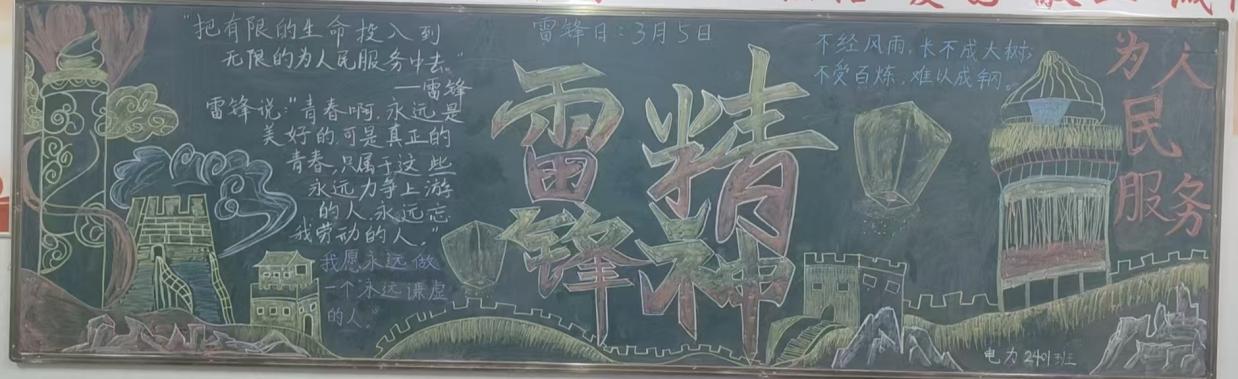 "把有限的生命投入到
无限的为人民服务中去。"
—雷锋
雷锋说:"青春啊,永远是
美好的,可是真正的
青春,只属于这些
永远力争上游
的人,永远忘
我劳动的人,"
我愿永远做
一个永远谦虚
的人。"
雷锋日:3月5日
雷锋
精神
不经风雨,长不成大树;
不受百炼,难以成钢。
为人
民
服务
电力2401班